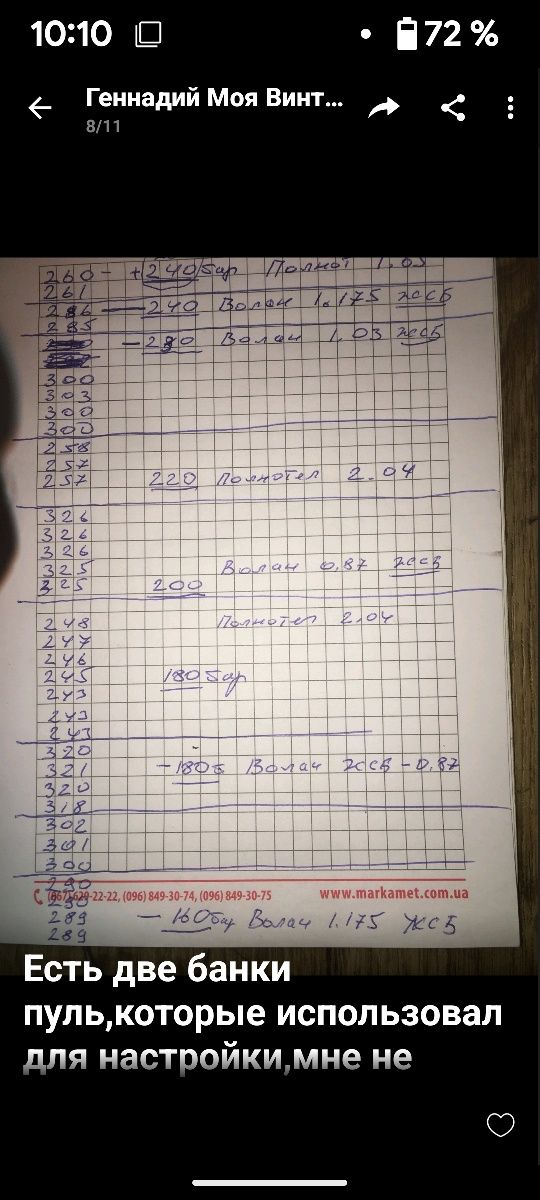 10:10 72 %
Геннадий Моя Винт...
8/11
260 - + 240 бар Полнот 1.03
261
286 — 240 Волан 1.175 ЖСБ
285
— 230 Волан 1.03 ЖСБ
300
303
300
300
258
257
257 220 Полнотел 2.04
326
326
326
325 Волан 0,87 ЖСБ
325 200
248 Полнотел 2.04
247
246
245 180 бар
243
243
243
320
321 - 180б Волан ЖСБ - 0.87
320
318
302
301
300
290
(067) 629-22-22, (096) 849-30-74, (096) 849-30-75 www.markamet.com.ua
289 — 160 бар Волан 1.175 ЖСБ
289
Есть две банки
пуль,которые использовал
для настройки,мне не